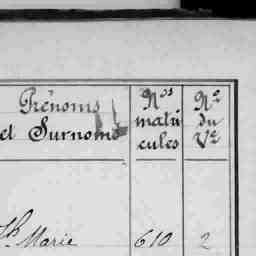 Prénoms
et Surnoms
Nos
matri
cules
No
du
Vt
Jh Marie 610 2